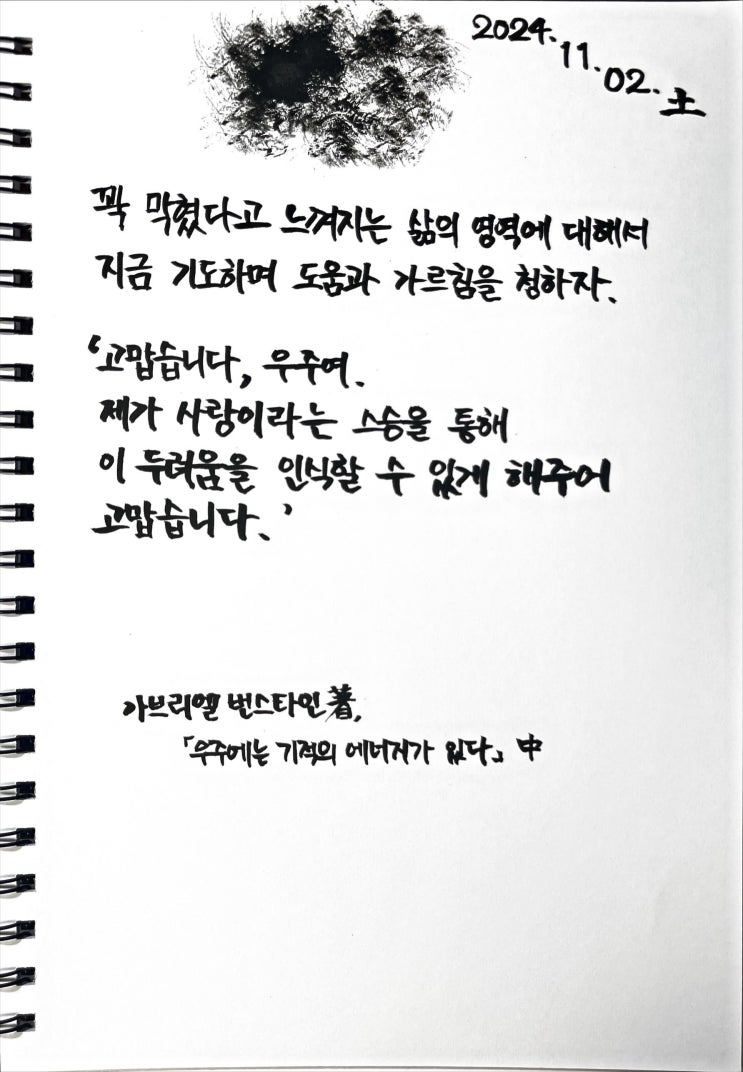 2024. 11. 02. 土
꽉 막혔다고 느껴지는 삶의 영역에 대해서
지금 기도하며 도움과 가르침을 청하자.
‘고맙습니다, 우주여.
제가 사랑이라는 스승을 통해
이 두려움을 인식할 수 있게 해주어
고맙습니다.’
가브리엘 번스타인 著,
「우주에는 기적의 에너지가 있다」 中